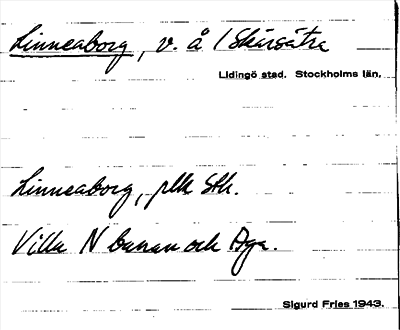 Linneaborg, v. å 1 Skärsätra
Lidingö stad. Stockholms län.
Linneaborg, plk Sth.
Villa N banan och Aga.
Sigurd Fries 1943.